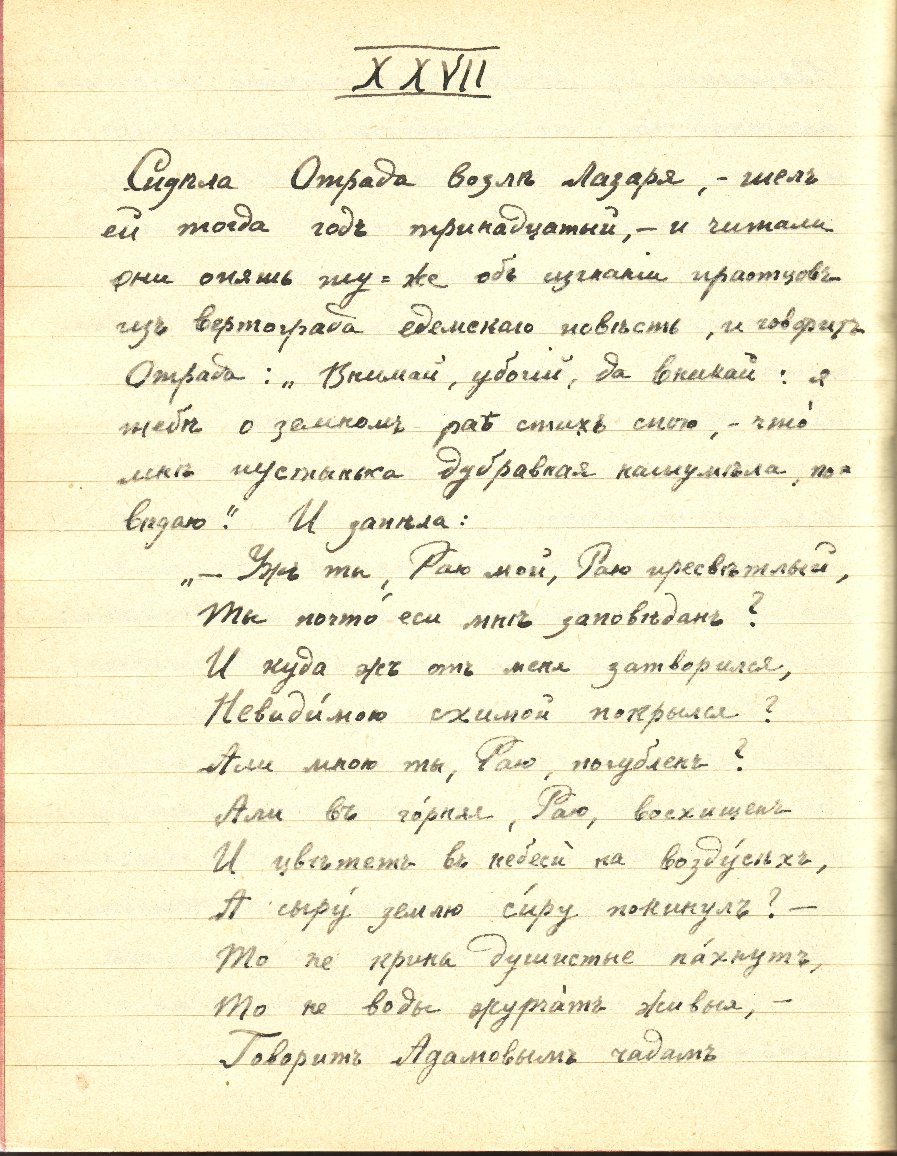 XXVII
Сидѣла Отрада возлѣ Лазаря, – шелъ
ей тогда годъ тринадцатый, – и читали
они опять ту-же объ изгнаніи праотцовъ
изъ вертограда едемскаго повѣсть, и говоритъ
Отрада: „Внимай, убогій, да вникай: я
тебѣ о земномъ раѣ стихъ спою, – что́
мнѣ пустынька дубравная нашумѣла, по=
вѣдаю“. И запѣла:
„— Ужъ ты, Раю мой, Раю пресвѣтлый,
Ты почто́ еси мнѣ заповѣданъ?
И куда жъ отъ меня затворился,
Невиди́мою схимой покрылся?
Али мною ты, Раю, погубленъ?
Али въ го́рняя, Раю, восхищенъ
И цвѣтетъ въ небеси́ на возду́сѣхъ,
А сыру́ землю си́ру покинулъ? —
То не крины душистые па́хнутъ,
То не воды журча́тъ живыя, –
Говоритъ Адамовымъ чадамъ